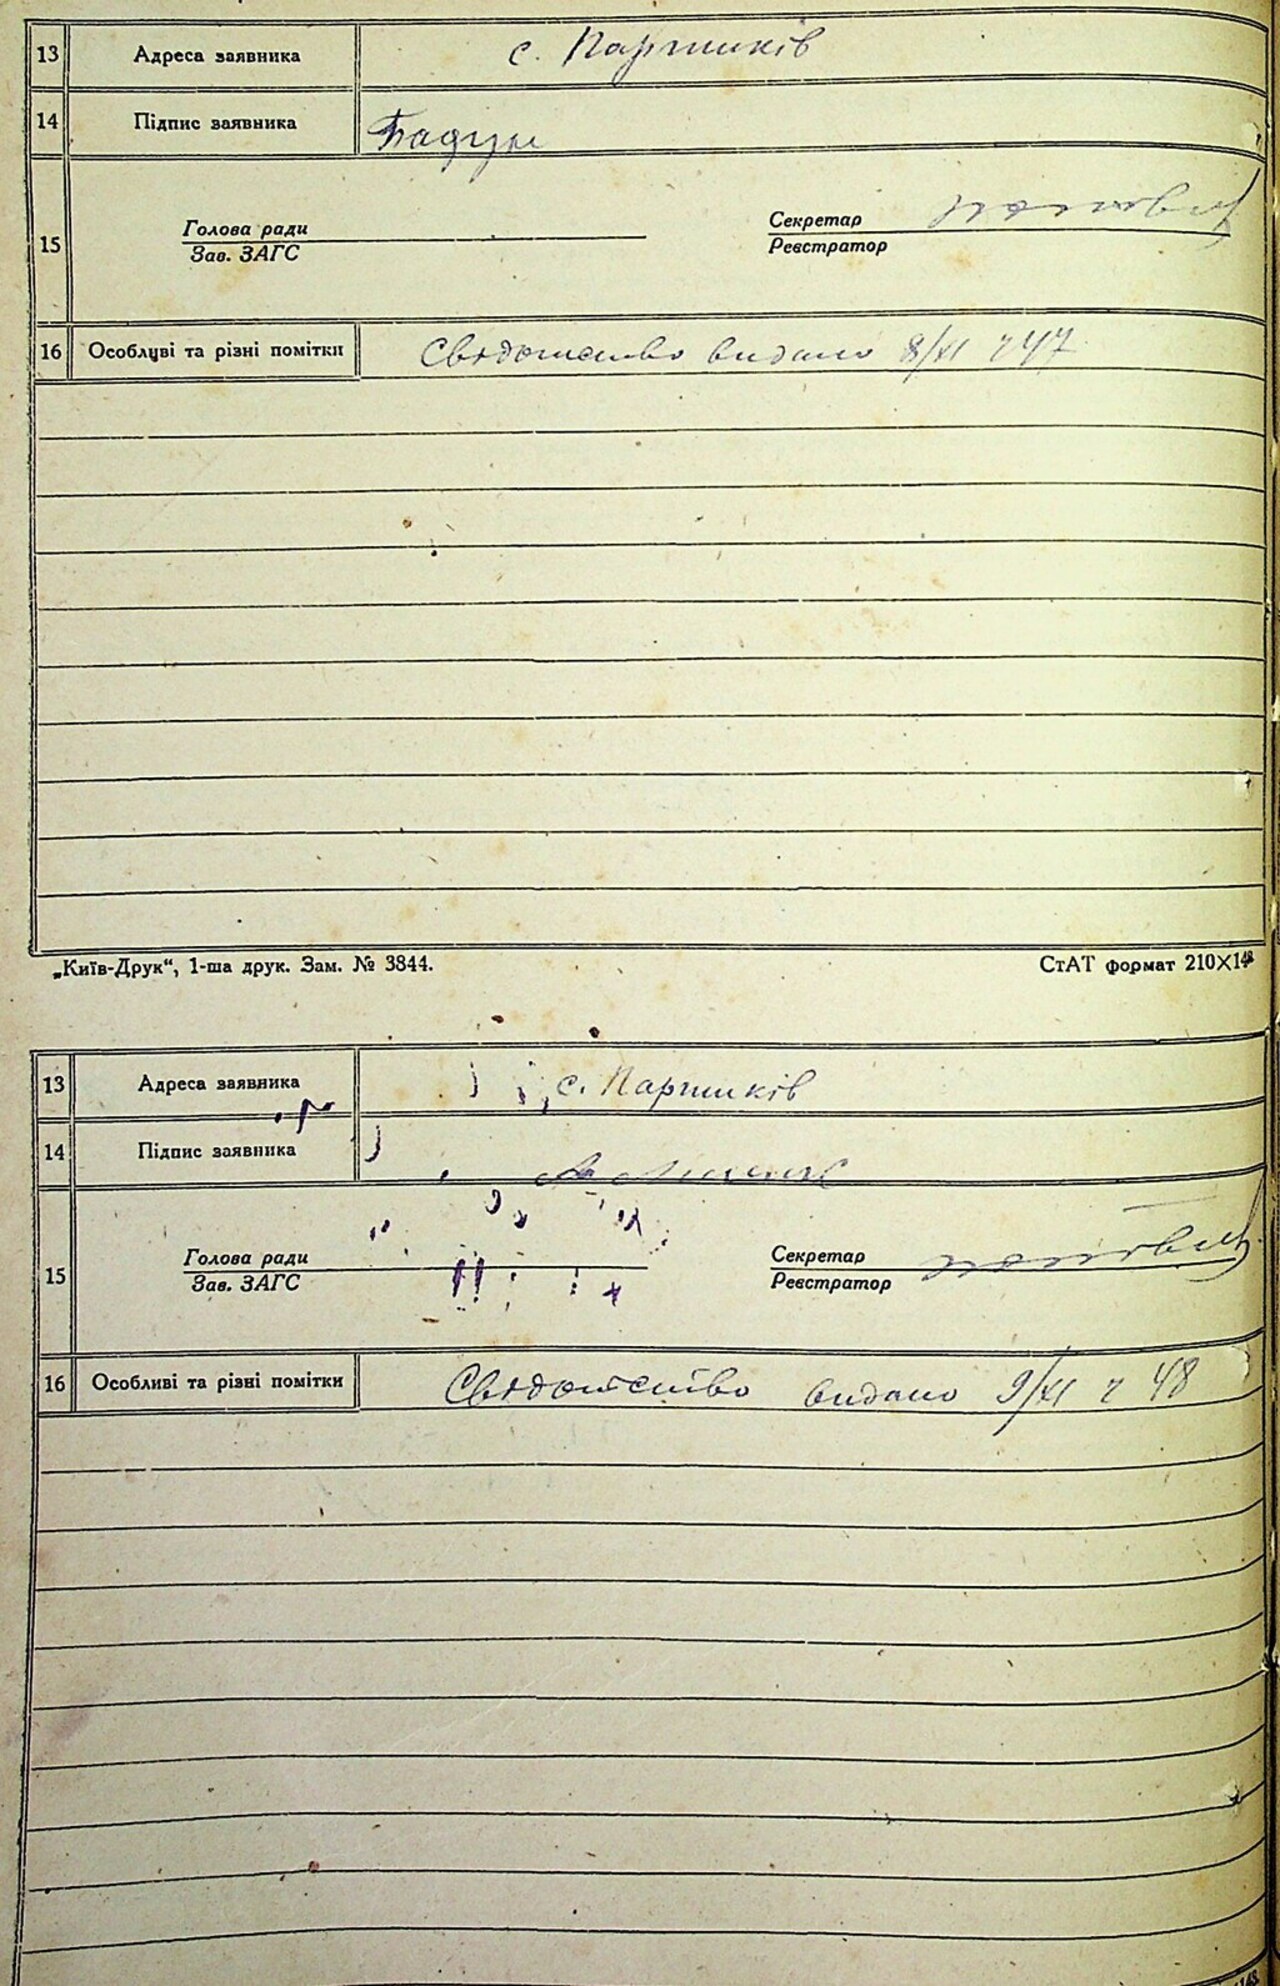 13 Адреса заявника с. Паришків
14 Підпис заявника Бадун
15 Голова ради Секретар
Зав. ЗАГС Реєстратор
16 Особлуві та різні помітки Свідотство видано 8/XI № 47
„Київ-Друк“, 1-ша друк. Зам. № 3844. СтАТ формат 210×148
13 Адреса заявника с. Паришків
14 Підпис заявника
15 Голова ради Секретар
Зав. ЗАГС Реєстратор
16 Особливі та різні помітки Свідотство видано 9/XI № 48